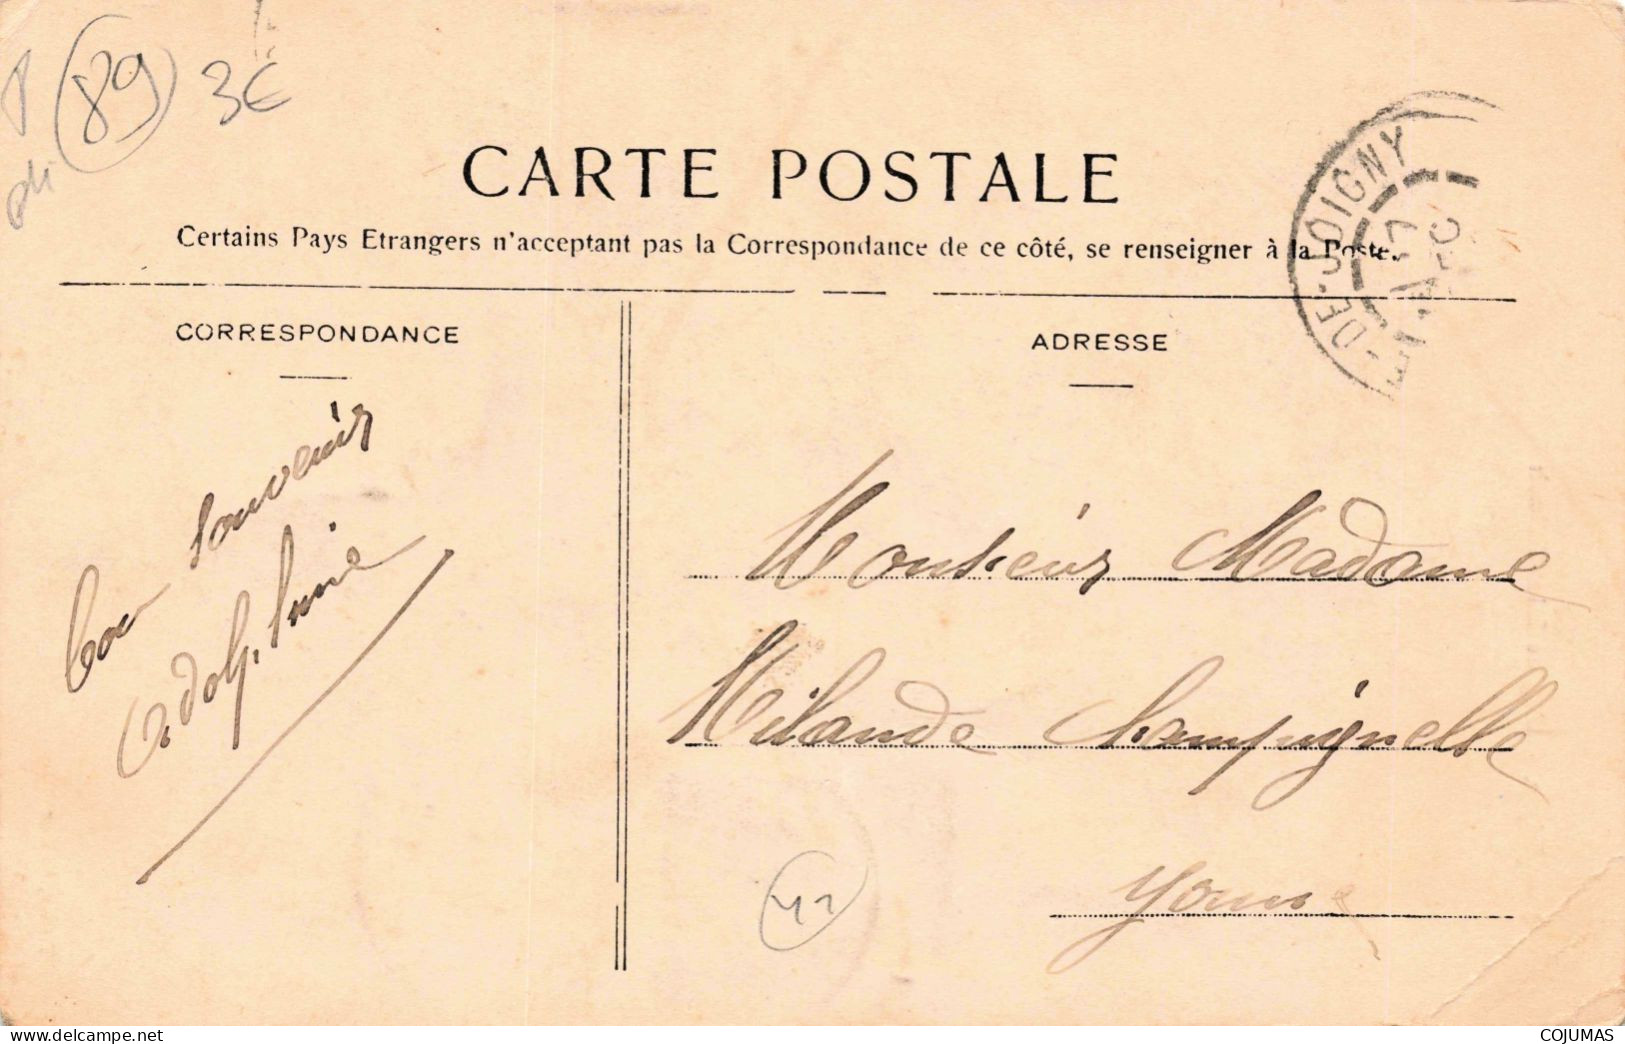 89
3€
CARTE POSTALE
Certains Pays Etrangers n'acceptant pas la Correspondance de ce côté, se renseigner à la Poste.
DE-JOIGNY
CORRESPONDANCE
ADRESSE
bon souvenir
Adolp.
Monsieur Madame
Milande Champignelle
Yonne
42
delcampe.net
COJUMAS